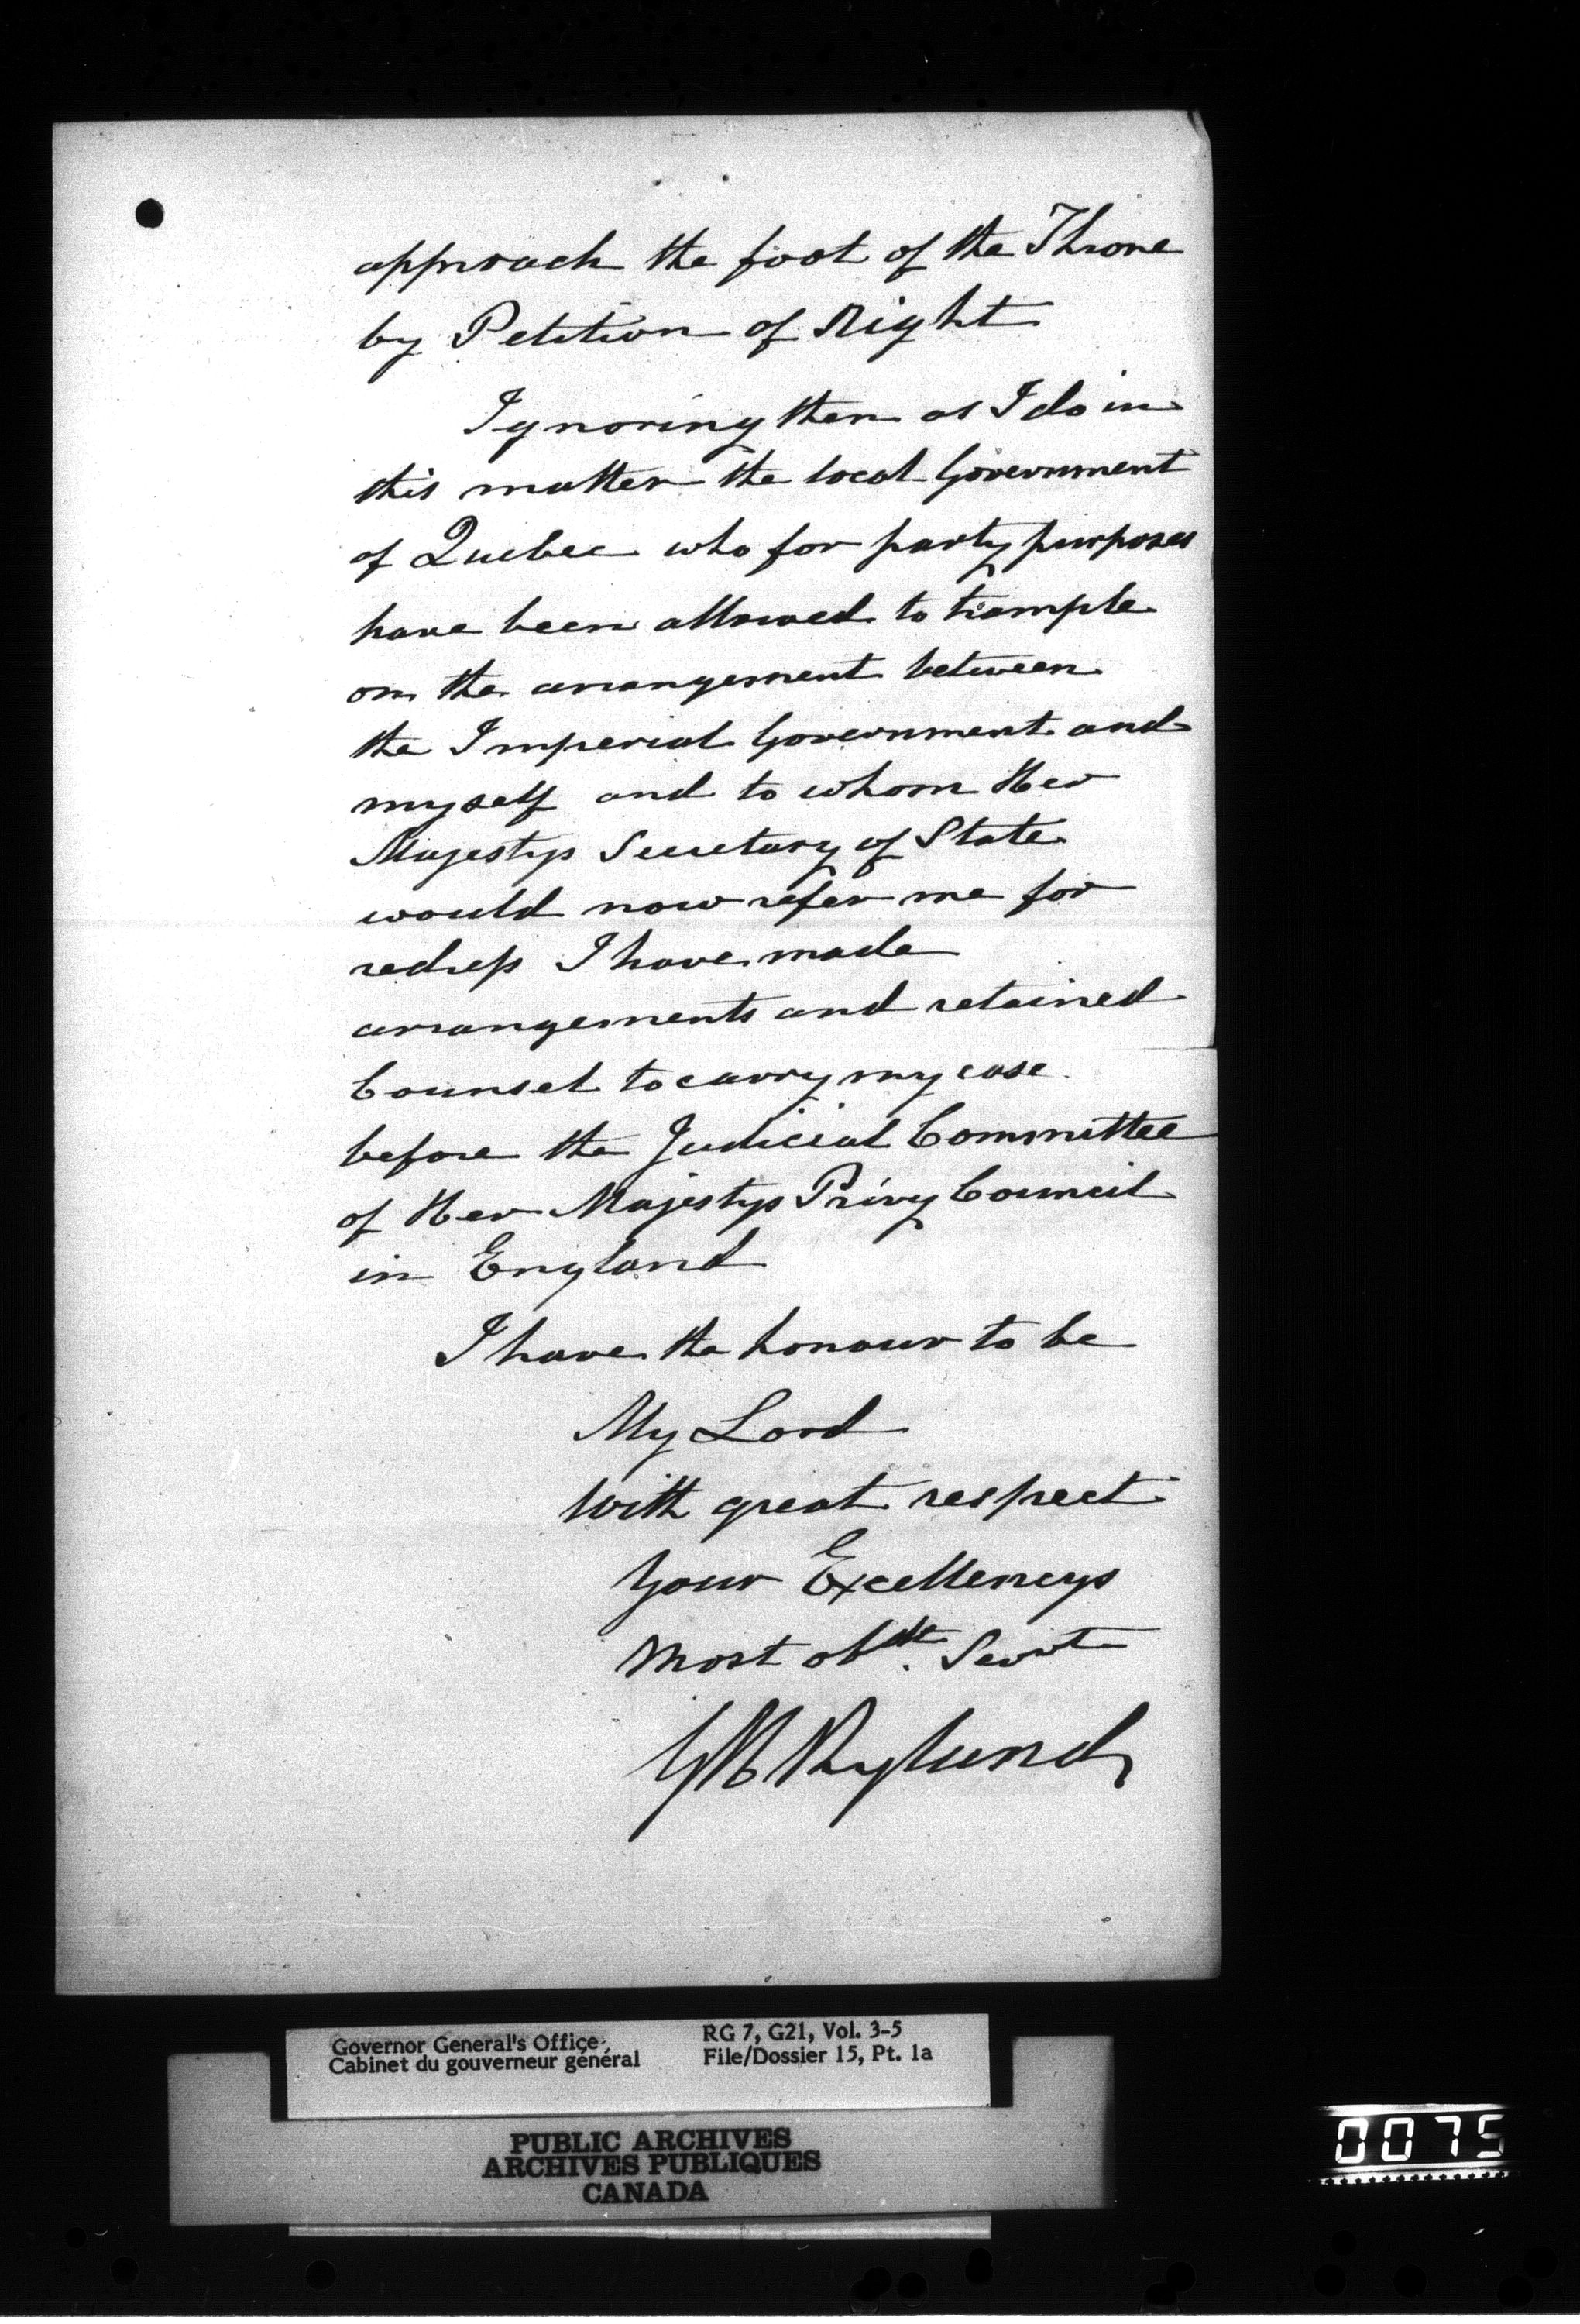 approach the foot of the Throne
by Petition of Right
Ignoring then as I do in
this matter the local Government
of Quebec who for party purposes
have been allowed to trample
on the arrangement between
the Imperial Government and
myself and to whom Her
Majestys Secretary of State
would now refer me for
redress I have made
arrangements and retained
Counsel to carry my case
before the Judicial Committee
of Her Majestys Privy Council
in England
I have the honour to be
My Lord
With great respect
Your Excellencys
Most obdt. Servt
GH Ryland
Governor General's Office
Cabinet du gouverneur général
RG 7, G21, Vol. 3-5
File/Dossier 15, Pt. 1a
PUBLIC ARCHIVES
ARCHIVES PUBLIQUES
CANADA
0075